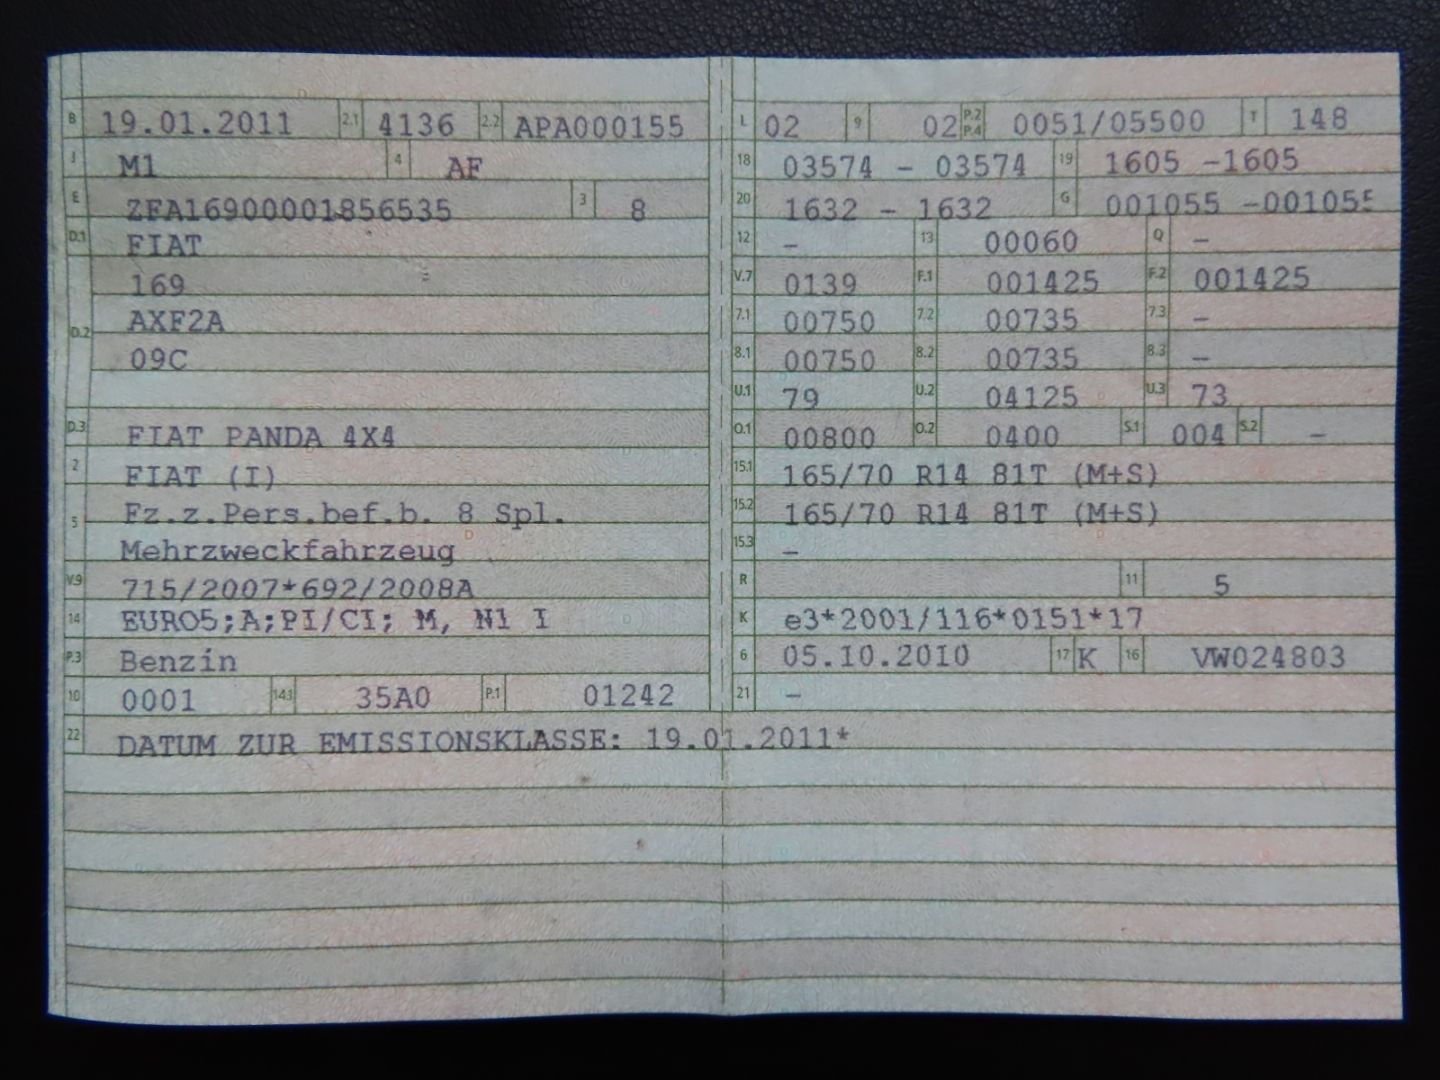 B 19.01.2011 2.1 4136 2.2 APA000155
J M1 4 AF
E ZFA16900001856535 3 8
D.1 FIAT
169
D.2 AXF2A
09C
D.3 FIAT PANDA 4X4
2 FIAT (I)
5 Fz.z.Pers.bef.b. 8 Spl.
Mehrzweckfahrzeug
V.9 715/2007*692/2008A
14 EURO5;A;PI/CI; M, N1 I
P.3 Benzin
10 0001 14.1 35A0 P.1 01242
L 02 9 02 P.2 P.4 0051/05500 T 148
18 03574 - 03574 19 1605 -1605
20 1632 - 1632 G 001055 -001055
12 - 13 00060 Q -
V.7 0139 F.1 001425 F.2 001425
7.1 00750 7.2 00735 7.3 -
8.1 00750 8.2 00735 8.3 -
U.1 79 U.2 04125 U.3 73
O.1 00800 O.2 0400 S.1 004 S.2 -
15.1 165/70 R14 81T (M+S)
15.2 165/70 R14 81T (M+S)
15.3 -
R 11 5
K e3*2001/116*0151*17
6 05.10.2010 17 K 16 VW024803
21 -
22 DATUM ZUR EMISSIONSKLASSE: 19.01.2011*